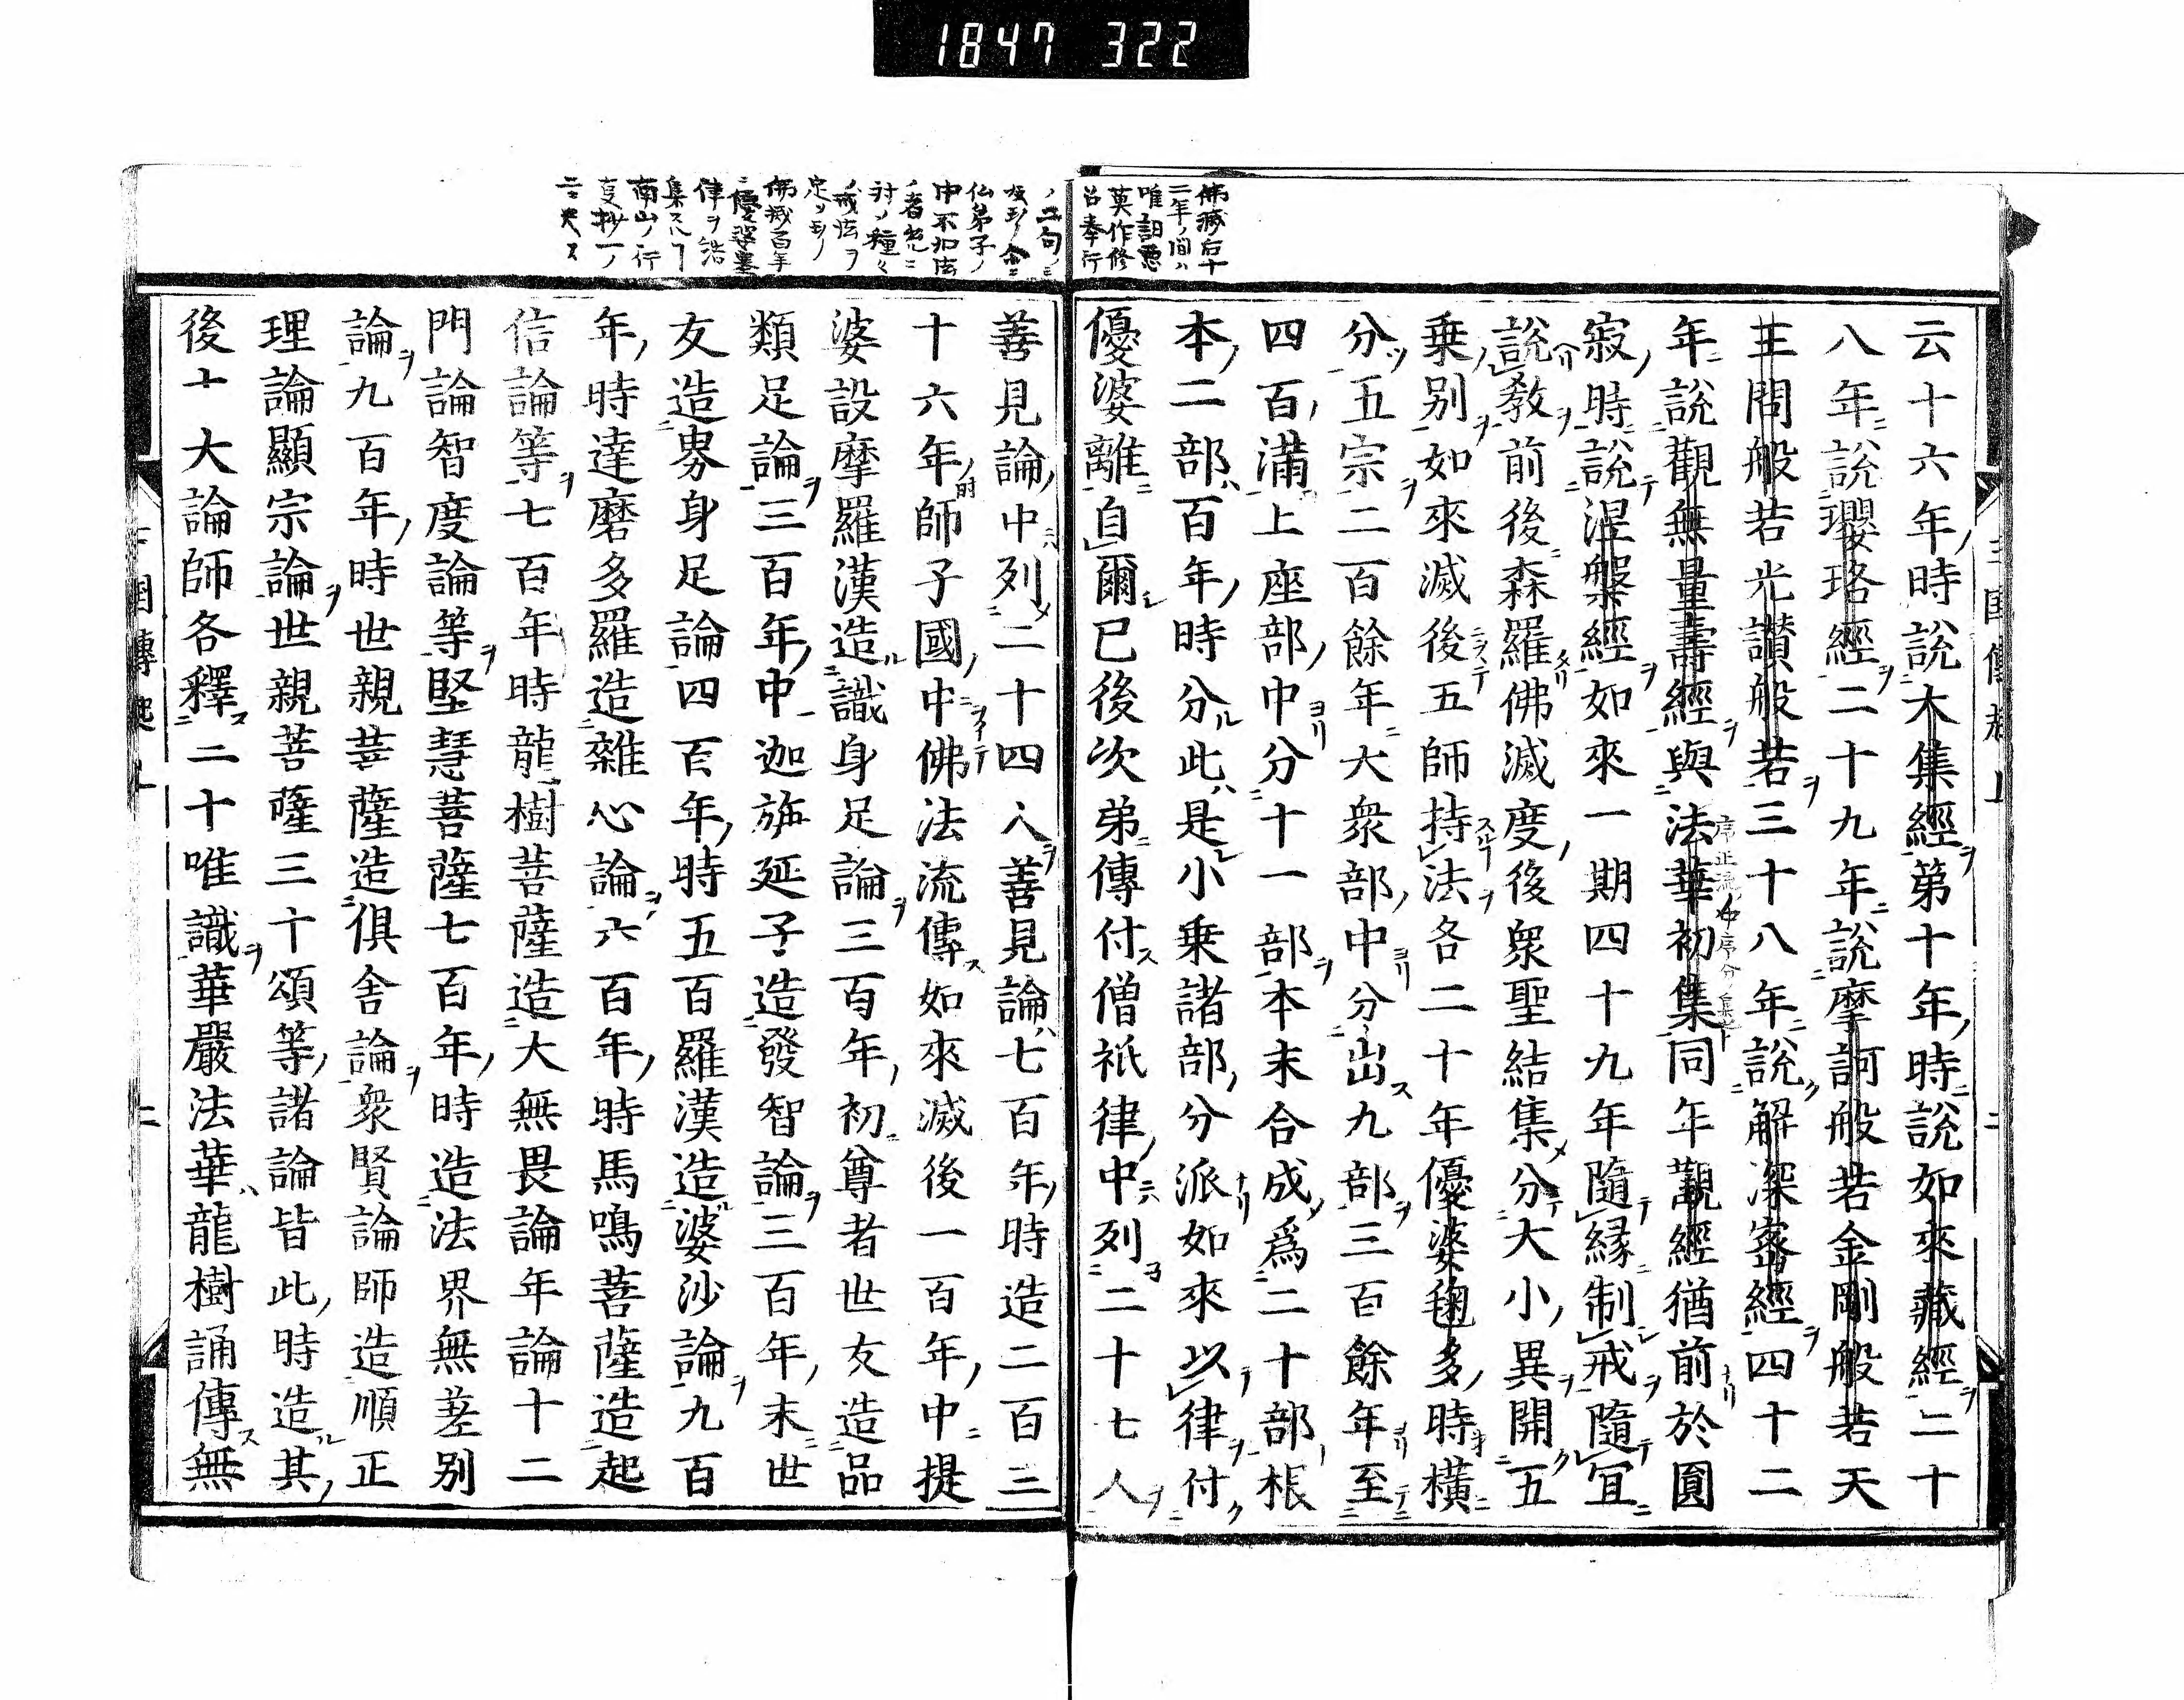 1847 322
佛滅后十
二年ノ間ハ
唯詔悪
莫作修
善奉行
云十六年時說大集經第十年時說如來藏經二十
八年說瓔珞經二十九年說摩訶般若金剛般若天
王問般若光讃般若三十八年說解深密經四十二
年說觀無量壽經與法華初集同年觀經猶前於圓
寂時說涅槃經如來一期四十九年隨緣制戒隨宜
說教前後森羅佛滅度後衆聖結集分大小異開五
乗別如來滅後五師持法各二十年優婆毱多時橫
分五宗二百餘年大衆部中分出九部三百餘年至
四百滿上座部中分十一部本末合成爲二十部根
本二部百年時分此是小乗諸部分派如來以律付
優婆離自爾已後次弟傳付僧祇律中列二十七人
佛滅百年
律ヲ
集スル
南山ノ行
善見論中列二十四人善見論七百年時造二百三
十六年師子國中佛法流傳如來滅後一百年中提
婆設摩羅漢造識身足論三百年初尊者世友造品
類足論三百年中迦旃延子造發智論三百年末世
友造界身足論四百年時五百羅漢造婆沙論九百
年時達磨多羅造雜心論六百年時馬鳴菩薩造起
信論等七百年時龍樹菩薩造大無畏論年論十二
門論智度論等堅慧菩薩七百年時造法界無差別
論九百年時世親菩薩造俱舍論衆賢論師造順正
理論顯宗論世親菩薩三十頌等諸論皆此時造其
後十大論師各釋二十唯識華嚴法華龍樹誦傳無